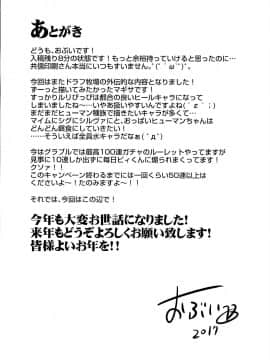 あとがき
どうも、おぶいです！
入稿残り8分の状態です！もっと余裕持っていけると思ったのに…
共信印刷さん本当にいつもすいません。ﾟ(ﾟ´ω`ﾟ)ﾟ。
今回はまたドラフ牧場の外伝的な内容となりました！
ずーっと描いてみたかったマギサです！
すっかりしりびっぱが似合うヒールキャラになって
しまいましたね～…いやあ扱いやすいんですよね(´ε｀；)
まだまだヒューマン種族で描きたいキャラが多くて…
マイムにシグにシルヴァにと、おっぱいヒューマンちゃんは
どんどん餌食にしていきたい！
…そういえば全員水キャラだなぁ(ﾟДﾟ)
今はグラブルでは最高100連ガチャのルーレットやってますが
見事に10連しか出ずに毎日ビィくんに煽られまくってます！
クソァ！！
このキャンペーン終わるまでには一回くらい50連以上は
くださいよ～！たのみますよ～！！
それでは、今回はこの辺で！
今年も大変お世話になりました！
来年もどうぞよろしくお願い致します！
皆様よいお年を！！
おぶい
2017